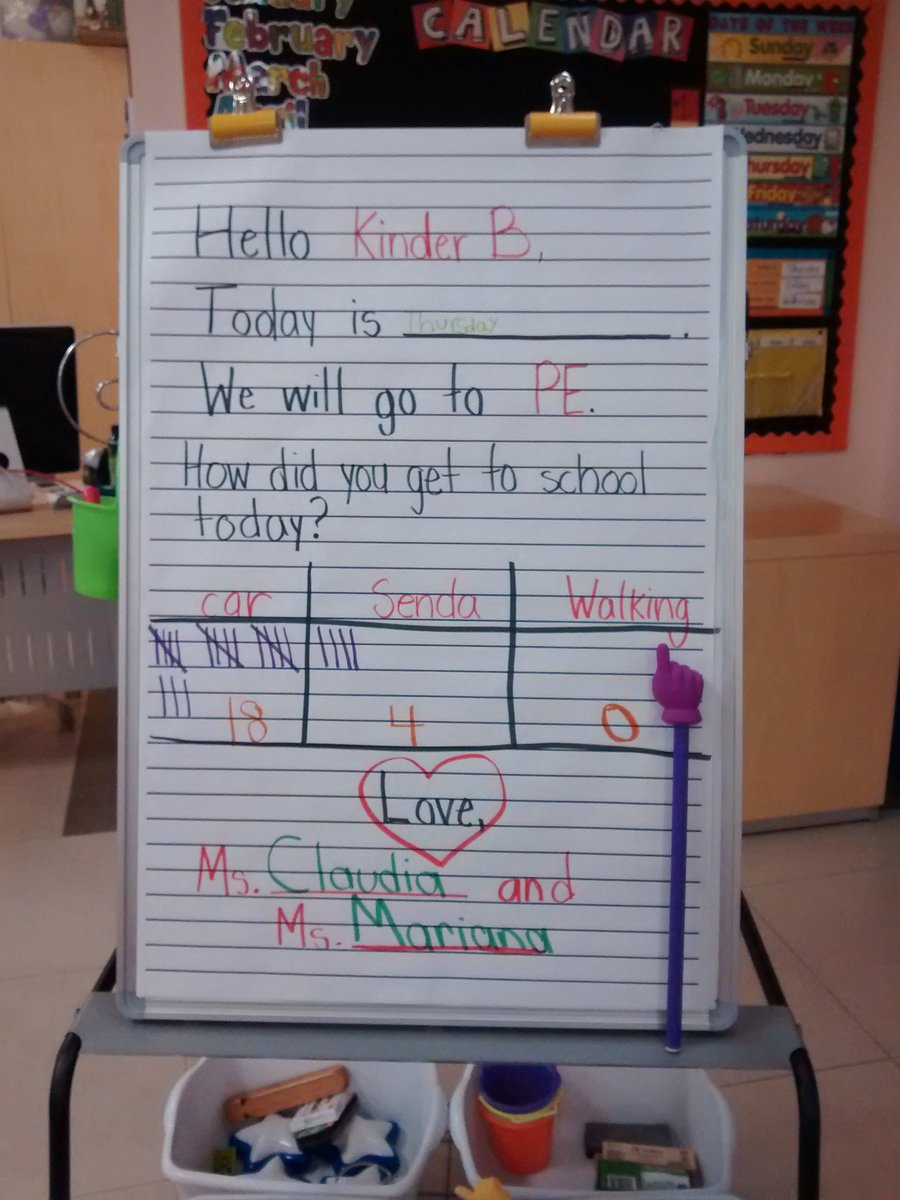 February
March
April
CALENDAR
DAYS OF THE WEEK
Sunday
Monday
Tuesday
Wednesday
Thursday
Friday
Saturday
Hello Kinder B,
Today is Thursday.
We will go to PE.
How did you get to school
today?
car Senda Walking
18 4 0
Love,
Ms. Claudia and
Ms. Mariana